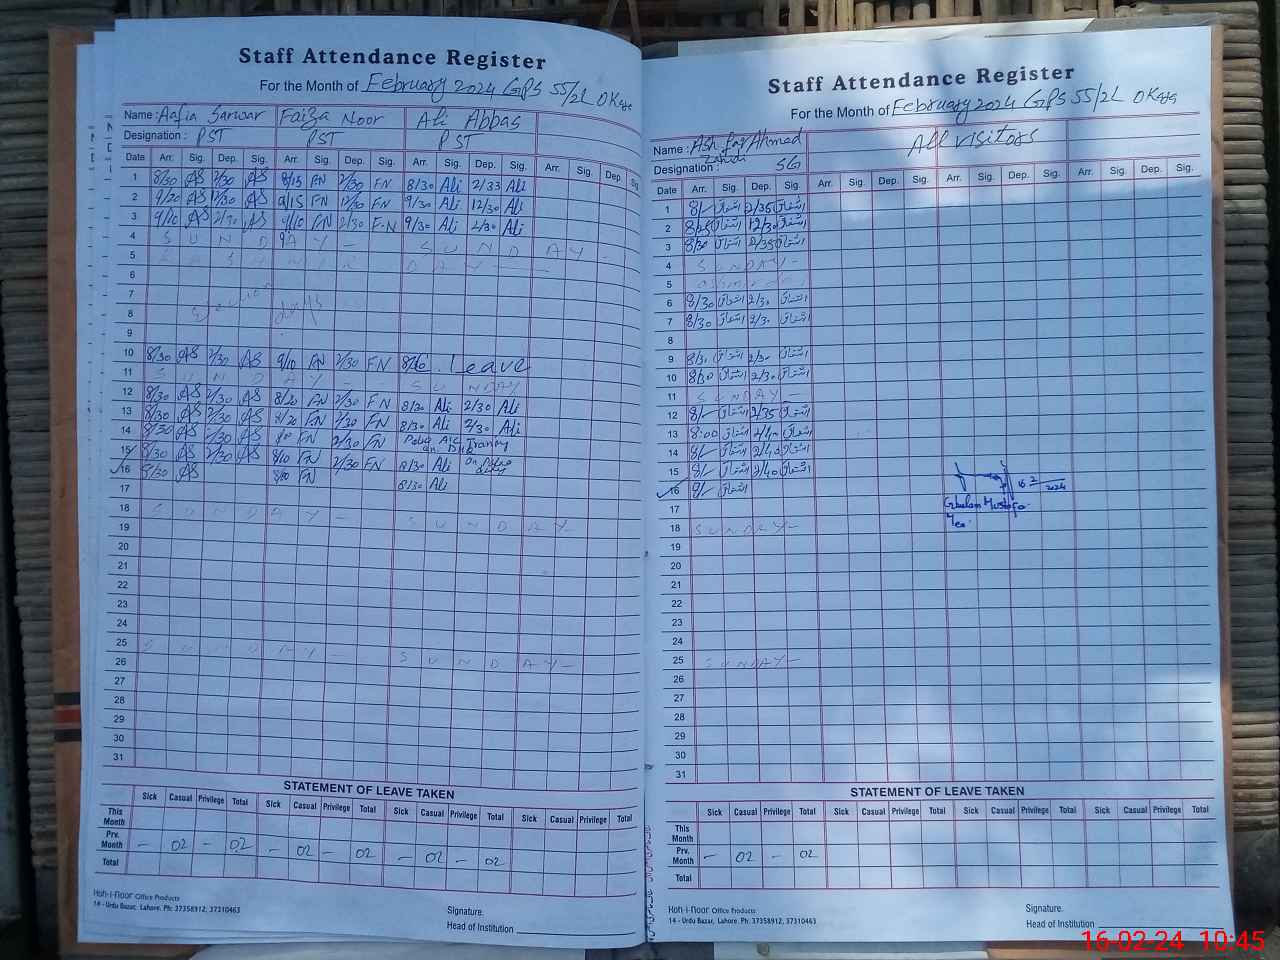 Staff Attendance Register
For the Month of February 2024 GPS 55/2L OKara
Name : Aafia Sarwar Faiza Noor Ali Abbas
Designation : PST PST PST
Date Arr. Sig. Dep. Sig. Arr. Sig. Dep. Sig. Arr. Sig. Dep. Sig. Arr. Sig. Dep. Sig.
1 8/30 AS 2/30 AS 8/15 FN 2/30 FN 8/30 Ali 2/33 Ali
2 9/20 AS 12/30 AS 9/15 FN 12/30 FN 9/30 Ali 12/30 Ali
3 9/10 AS 2/30 AS 9/10 FN 2/30 F.N 9/30 Ali 2/30 Ali
4 S U N D A Y - S U N D A Y -
5 K A S H M I R D A Y
6
7
8
9
10 8/30 AS 2/30 AS 9/10 FN 2/30 FN 8/30 . Leave
11 S U N D A Y - - S U NDAY
12 8/30 AS 2/30 AS 8/20 FN 2/30 FN 8/30 Ali 2/30 Ali
13 8/30 AS 2/30 AS 8/20 FN 2/30 FN 8/30 Ali 2/30 Ali
14 8/30 AS 2/30 AS FN 2/30 FN
15 8/30 AS 2/30 AS 8/10 FN 2/30 FN 8/30 Ali
16 9/30 AS 8/10 FN 8/30 Ali
17
18 S U N D A Y - S U N D A Y -
19
20
21
22
23
24
25 S U N D A Y - S U N D A Y -
26
27
28
29
30
31
STATEMENT OF LEAVE TAKEN
Sick Casual Privilege Total Sick Casual Privilege Total Sick Casual Privilege Total Sick Casual Privilege Total
This Month
Prv. Month - 02 - 02 - 02 - 02 - 02 - 02
Total
Koh-i-noor Office Products
14 - Urdu Bazar, Lahore. Ph: 37358912, 37310463
Signature.
Head of Institution
Staff Attendance Register
For the Month of February 2024 GPS 55/2L OKara
Name : Ashfaq Ahmad All visitors
Designation : SG
Date Arr. Sig. Dep. Sig. Arr. Sig. Dep. Sig. Arr. Sig. Dep. Sig. Arr. Sig. Dep. Sig.
1 8/- اشفاق 2/35 اشفاق
2 8/25 اشفاق 12/30 اشفاق
3 8/30 اشفاق 2/35 اشفاق
4 SUNDAY -
5
6 8/30 اشفاق 2/30 اشفاق
7 8/30 اشفاق 2/30 اشفاق
8
9 8/30 اشفاق 2/30 اشفاق
10 8/30 اشفاق 2/30 اشفاق
11 SUNDAY -
12 8/- اشفاق 2/35 اشفاق
13 8:00 اشفاق 2/40 اشفاق
14 8/- اشفاق 2/40 اشفاق
15 8/- اشفاق 2/40 اشفاق
16 9/- اشفاق 16 2 2024
17 Ghulam Mustafa
18 SUNDAY -
19
20
21
22
23
24
25 SUNDAY -
26
27
28
29
30
31
STATEMENT OF LEAVE TAKEN
Sick Casual Privilege Total Sick Casual Privilege Total Sick Casual Privilege Total Sick Casual Privilege Total
This Month
Prv. Month - 02 - 02
Total
Koh-i-noor Office Products
14 - Urdu Bazar, Lahore. Ph: 37358912, 37310463
Signature.
Head of Institution
16-02-24 10:45